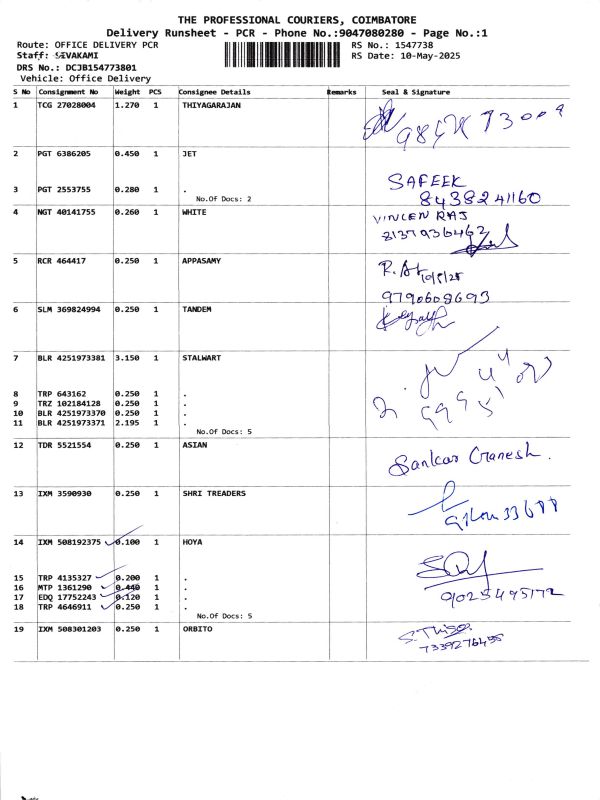 THE PROFESSIONAL COURIERS, COIMBATORE
Delivery Runsheet - PCR - Phone No.:9047080280 - Page No.:1
Route: OFFICE DELIVERY PCR RS No.: 1547738
Staff: SIVAKAMI RS Date: 10-May-2025
DRS No.: DCJB154773801
Vehicle: Office Delivery
S No Consignment No Weight PCS Consignee Details Remarks Seal & Signature
1 TCG 27028004 1.270 1 THIYAGARAJAN
2 PGT 6386205 0.450 1 JET
SAFEEK
3 PGT 2553755 0.280 1 .
8438241160
No.Of Docs: 2
4 NGT 40141755 0.260 1 WHITE VINCEN RAJ
8137936462
5 RCR 464417 0.250 1 APPASAMY
10/5/25
9790608693
6 SLM 369824994 0.250 1 TANDEM
7 BLR 4251973381 3.150 1 STALWART
8 TRP 643162 0.250 1 .
9 TRZ 102184128 0.250 1 .
10 BLR 4251973370 0.250 1 .
11 BLR 4251973371 2.195 1 .
No.Of Docs: 5
12 TDR 5521554 0.250 1 ASIAN Sankar Ganesh.
13 IXM 3590930 0.250 1 SHRI TREADERS
14 IXM 508192375 0.100 1 HOYA
15 TRP 4135327 0.200 1 .
16 MTP 1361290 0.440 1 .
17 EDQ 17752243 0.120 1 .
9025495172
18 TRP 4646911 0.250 1 .
No.Of Docs: 5
19 IXM 508301203 0.250 1 ORBITO
7339276495